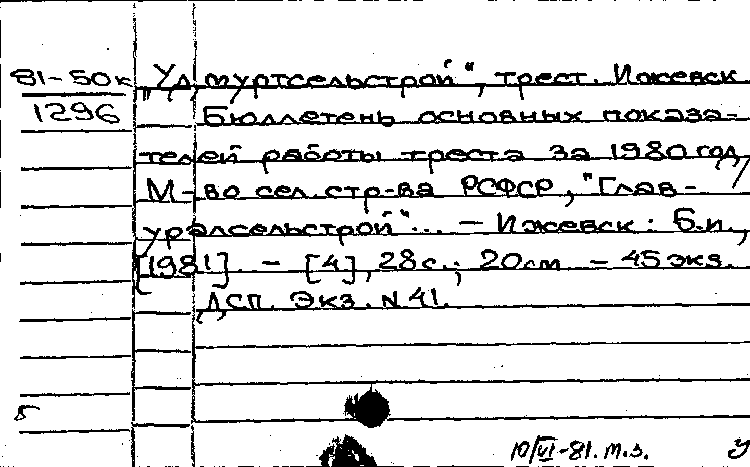 81-50к „Удмуртсельстрой“, трест. Ижевск
1296 Бюллетень основных показа-
телей работы треста за 1980 год /
М-во сел. стр-ва РСФСР, "Глав-
уралсельстрой"... - Ижевск: Б.и.,
[1981]. - [4], 28 с.; 20 см - 45 экз.
ДСП. Экз. N 41.
10/VI-81. т.з. У